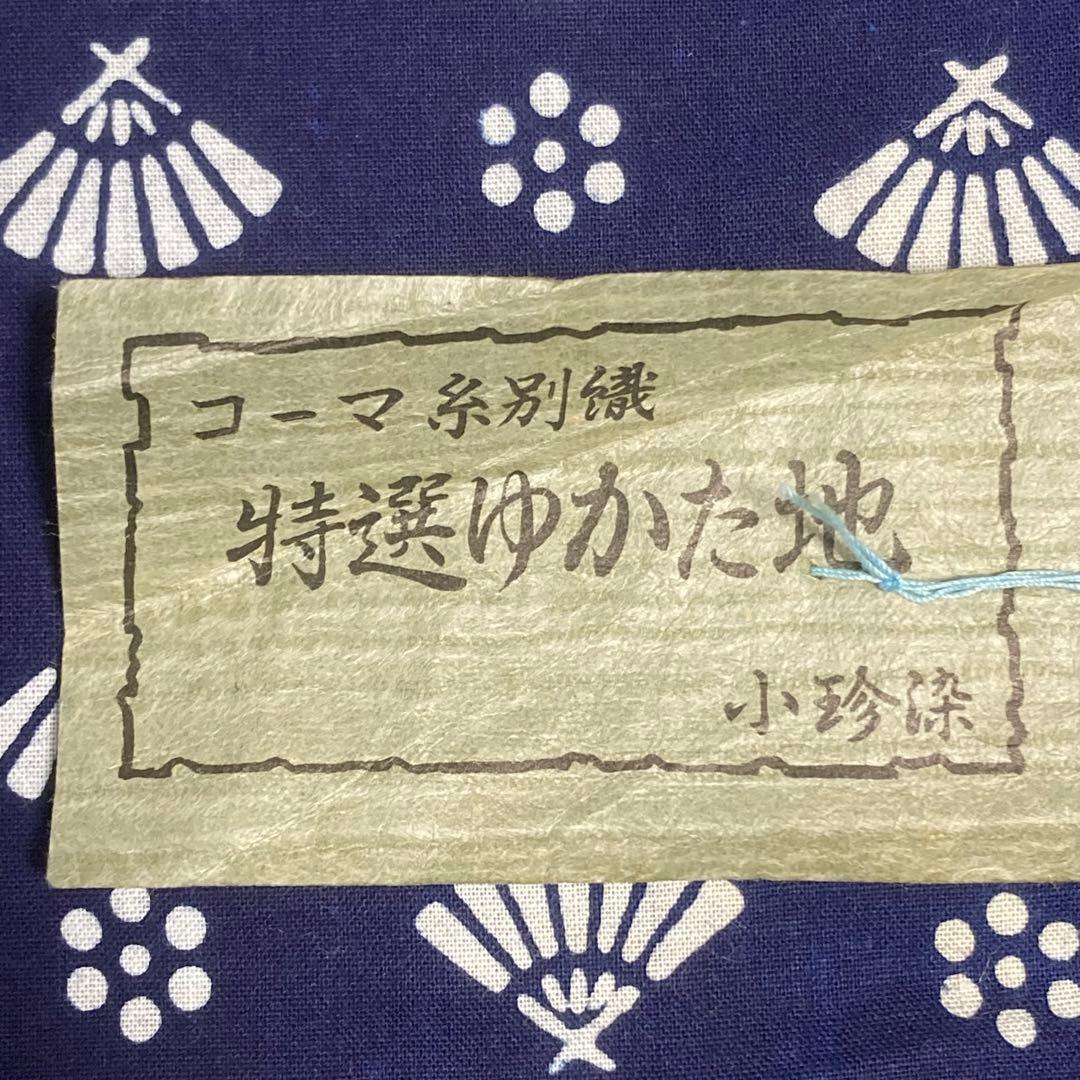 コーマ糸別織
特選ゆかた地
小珍染